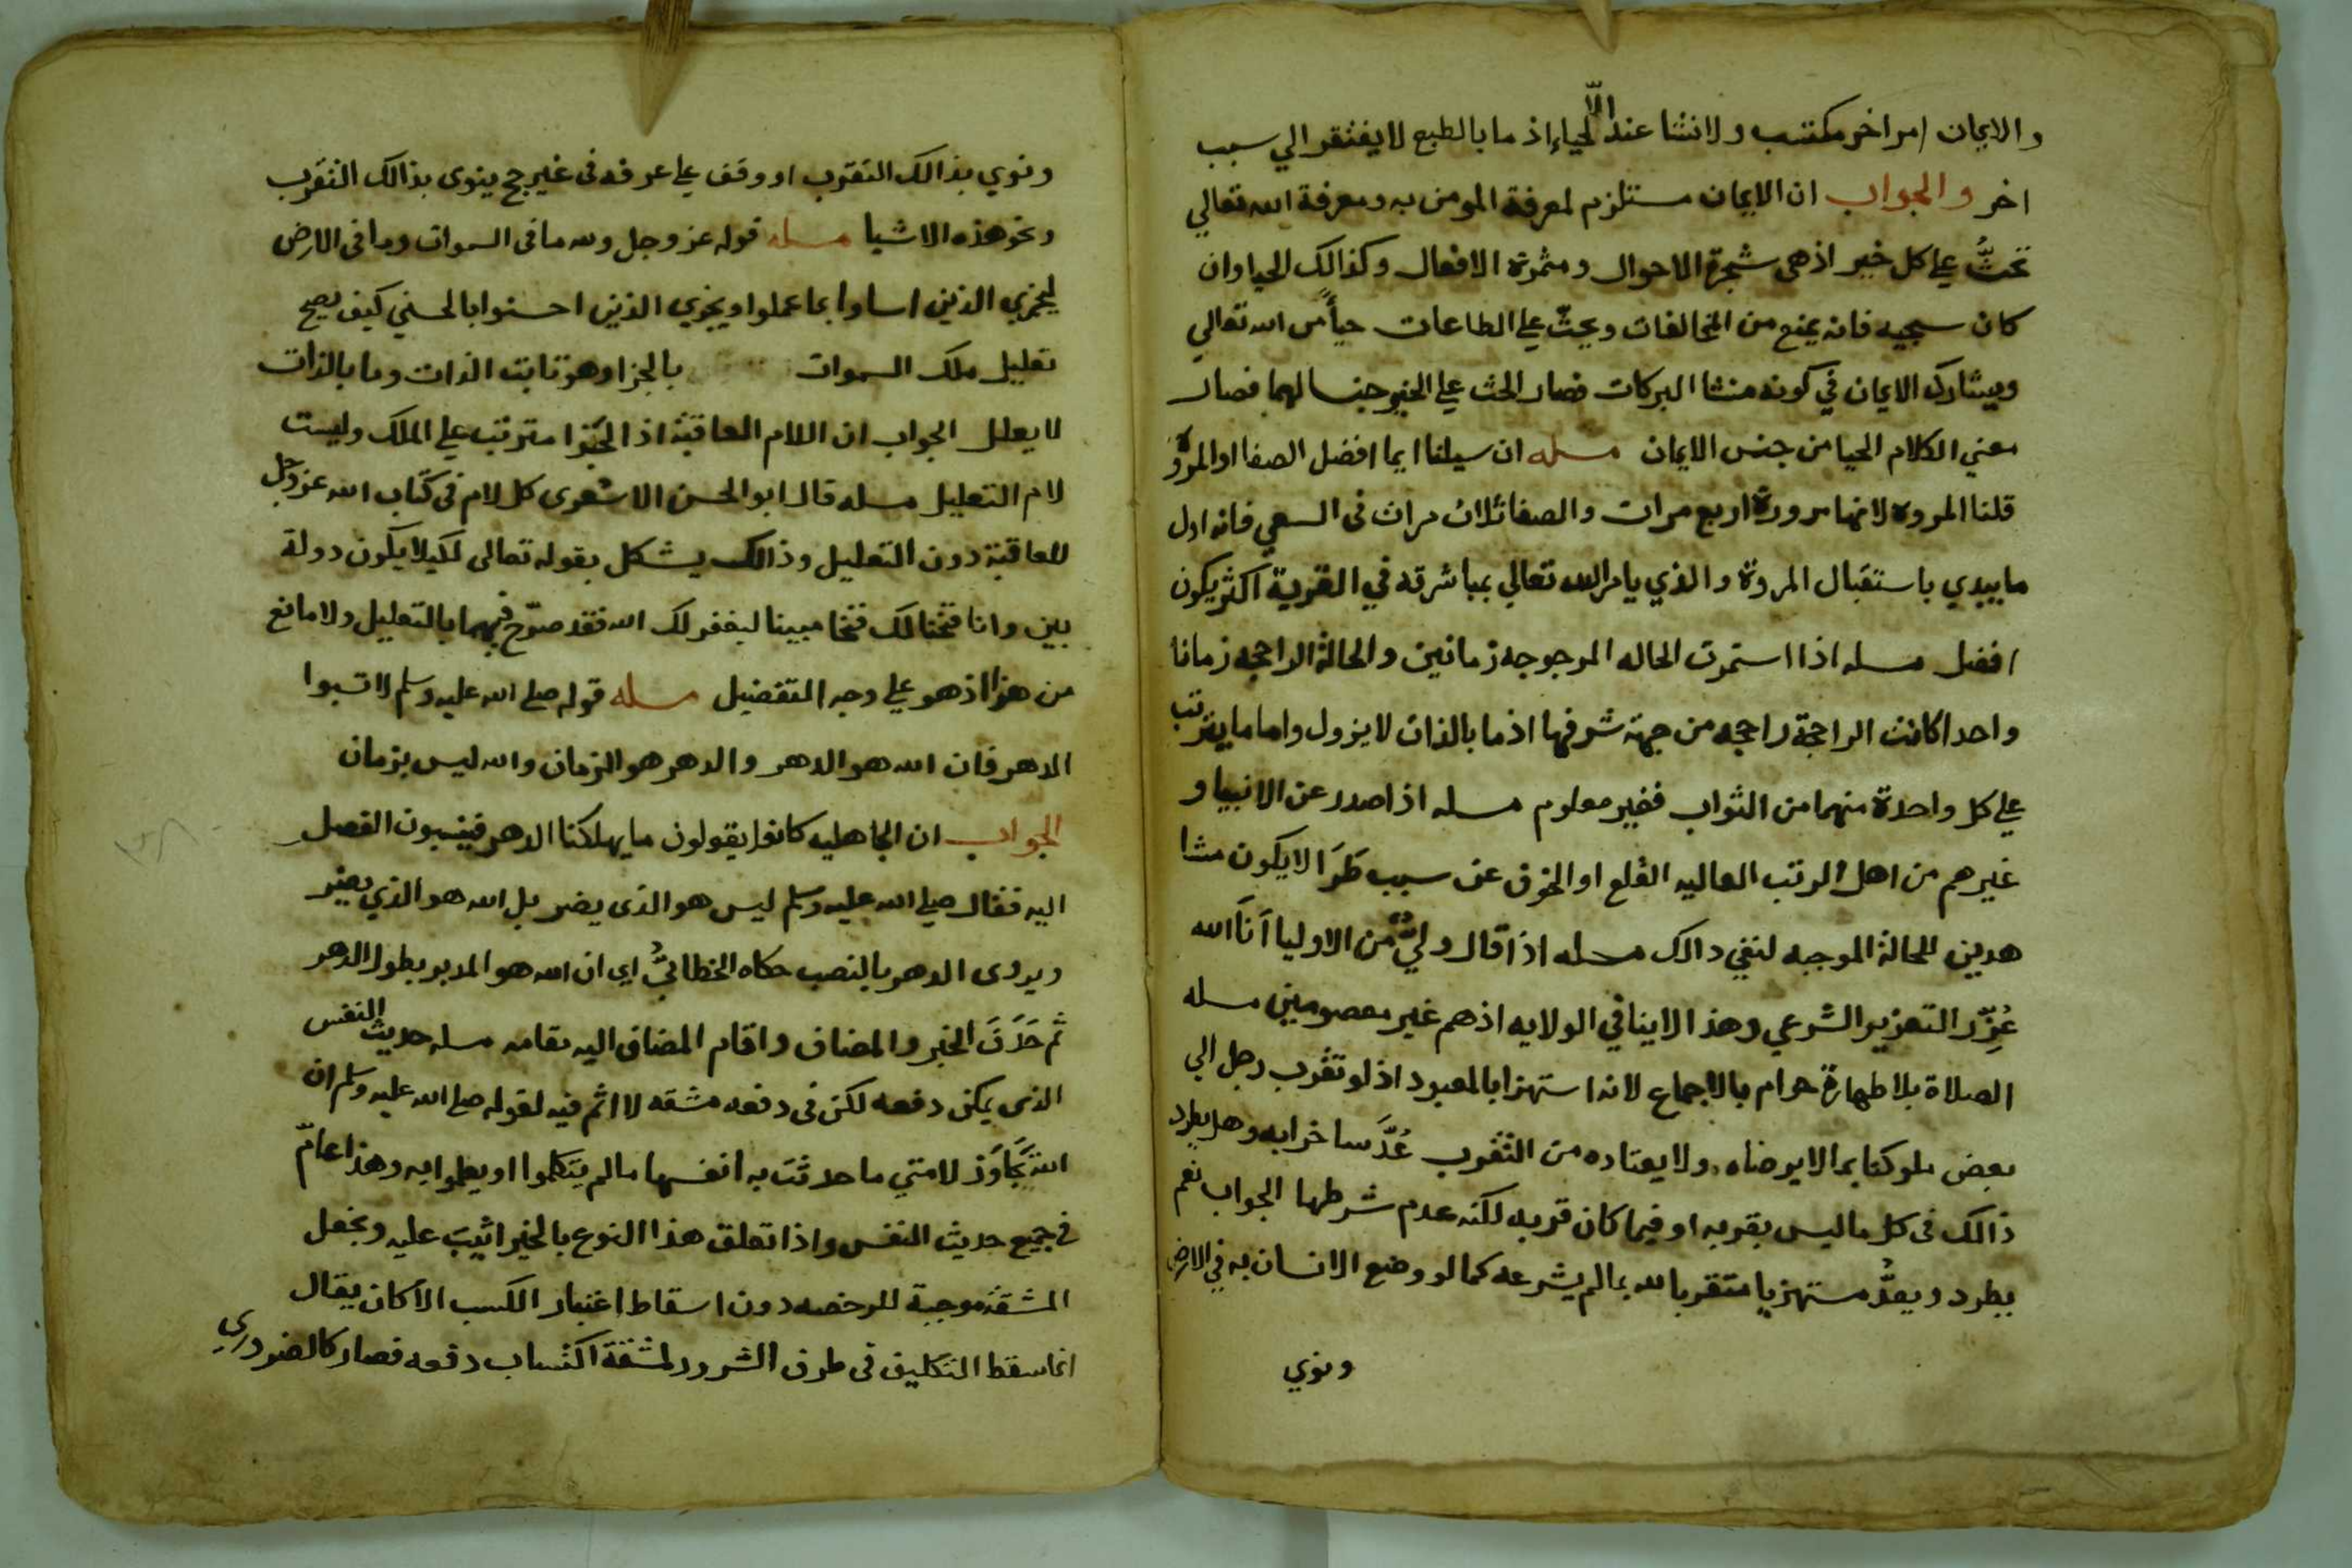 والايمان امر اخر مكتسب ولا نشا عند الحياء الّا اذ ما بالطبع لا يفتقر الي سبب
اخر والجواب ان الايمان مستلزم لمعرفة المومن به ومعرفة الله تعالي
تحثُّ علي كل خير اذ هي شجرة الاحوال ومثمرة الافعال وكذالك الحيا وان
كان سجيه فانه يمنع من المخالفات ويحثّ علي الطاعات حياً من الله تعالي
ويشارك الايمان في كونه منشا البركات فصار الحث علي الخير جنسا لهما فصار
معني الكلام الحيا من جنس الايمان مسله ان سيلنا ايما افضل الصفا او المروة
قلنا المروه لانها مرورة اربع مرات والصفا ثلاث مرات في السعي فانه اول
ما يبدي باستقبال المروة والذي يامر الله تعالي بمباشرته في القربة اكثر يكون
افضل مسله اذا استمرت الحاله المرجوجه زمانين والحالة الراجحه زمانا
واحدا كانت الراجحة راجحه من جهة شرفها اذ ما بالذات لا يزول واما ما يترتب
علي كل واحدة منهما من الثواب فغير معلوم مسله اذا صدر عن الانبيا و
غيرهم من اهل الرتب العاليه الهلع او الخوف عن سبب طَرَا لا يكون مشا
هدين للحالة الموجبه لنفي دالك مسله اذا قال وليٌّ من الاوليا انَا الله
عُزِّر التعزير الشرعي وهذا لا ينافي الولايه اذ هم غير معصومين مسله
الصلاة بلا طهارة حرام بالاجماع لانه استهزا بالمعبود اذ لو تقرب رجل الي
بعض ملوكنا بما لا يرضاه ولا يعتاده من التقرب عُدَّ ساخرا به وهل يطرد
ذالك في كل ما ليس بقربه او فيما كان قربه لكنه عدم شرطها الجواب نعم
يطرد ويعدُّ مستهزيا متقربا لله بما لم يشرعه كما لو وضع الانسان به في الارض
ونوي
ونوي بذالك التقرب او وقف علي عرفه في غير حج ينوي بذالك التقرب
ونحو هذه الاشيا مسله قوله عز وجل ولله ما في السموات وما في الارض
ليجزي الذين اساوا بما عملوا ويجزي الذين احسنوا بالحسني كيف يصح
تعليل ملك السموات بالجزا وهو ثابت الذات وما بالذات
لا يعلل الجواب ان اللام العاقبة اذ الجزا مترتب علي الملك وليست
لام التعليل مسله قال ابو الحسن الاشعري كل لام في كتاب الله عز وجل
للعاقبة دون التعليل وذالك يشكل بقوله تعالى لكيلا يكون دولة
بين وانا فتحنا لك فتحا مبينا ليغفر لك الله فقد صرّح فيهما بالتعليل ولا مانع
من هذا اذ هو علي وجه التفضيل مسله قوله صلي الله عليه وسلم لا تسبوا
الدهر فان الله هو الدهر والدهر هو الزمان والله ليس بزمان
الجواب ان الجاهليه كانوا يقولون ما يهلكنا الدهر فينسبون الفصل
اليه فقال صلي الله عليه وسلم ليس هو الذي يضر بل الله هو الذي يضر
ويروى الدهر بالنصب حكاه الخطابيُّ اي ان الله هو المدبر بطول الدهر
ثم حَذَفَ الخبر والمضاف واقام المضاف اليه مقامه مسله حديث النفس
الذي يمكن دفعه لكن في دفعه مشقه لا اثم فيه لقوله صلي الله عليه وسلم ان
الله تَجَاوَز لامتي ما حدثت به انفسها ما لم يتكلموا او يعملوا به وهذا عامّ
في جميع حديث النفس واذا تعلق هذا النوع بالخير اثيبَ عليه وبجعل
المشقه موجبة للرخصه دون اسقاط اعتبار الكسب الا كان يقال
انما سقط التكليف في طرف الشرور لمشقة اكتساب دفعه فصار كالضروري